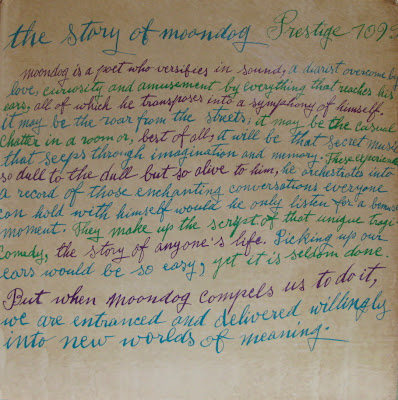 the story of moondog Prestige 109
moondog is a poet who versifies in sound, a diarist overcome by
love, curiosity and amusement by everything that reaches his
ears, all of which he transposes into a symphony of himself.
it may be the roar from the streets, it may be the casual
chatter in a room or, best of all, it will be that secret music
that seeps through imagination and memory. These experiences
so dull to the dull but so alive to him, he orchestrates into
a record of those enchanting conversations everyone
can hold with himself would he only listen for a
moment. They make up the script of that unique tragi
comedy, the story of anyone's life. Picking up our
ears would be so easy, yet it is seldom done.
But when moondog compels us to do it,
we are entranced and delivered willingly
into new worlds of meaning.